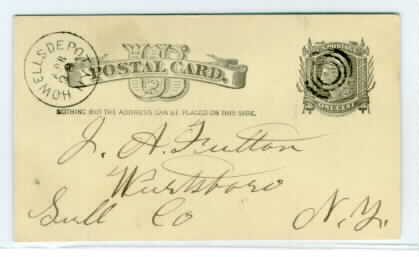 HOWELLS DEPOT
POSTAL CARD.
NOTHING BUT THE ADDRESS CAN BE PLACED ON THIS SIDE.
ONE CENT
J. A. Fulton
Wurtsboro
Sull Co N.Y.